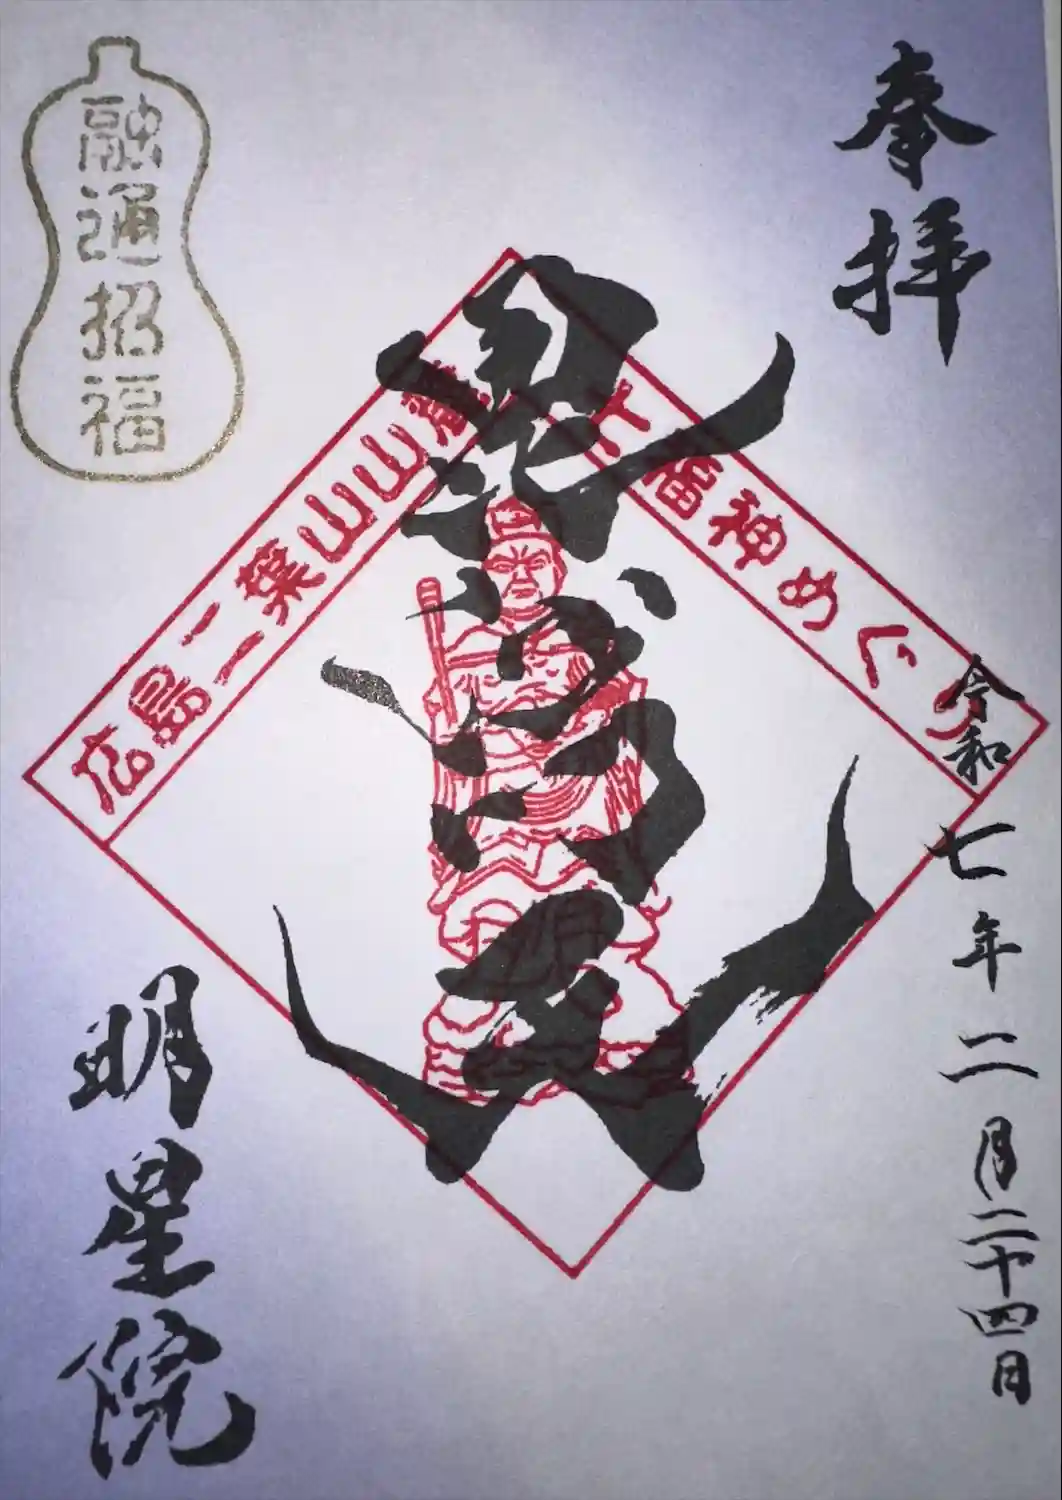 奉拝
令和七年二月二十四日
毘沙門天
広島二葉山山麓
七福神めぐり
融通招福
明星院